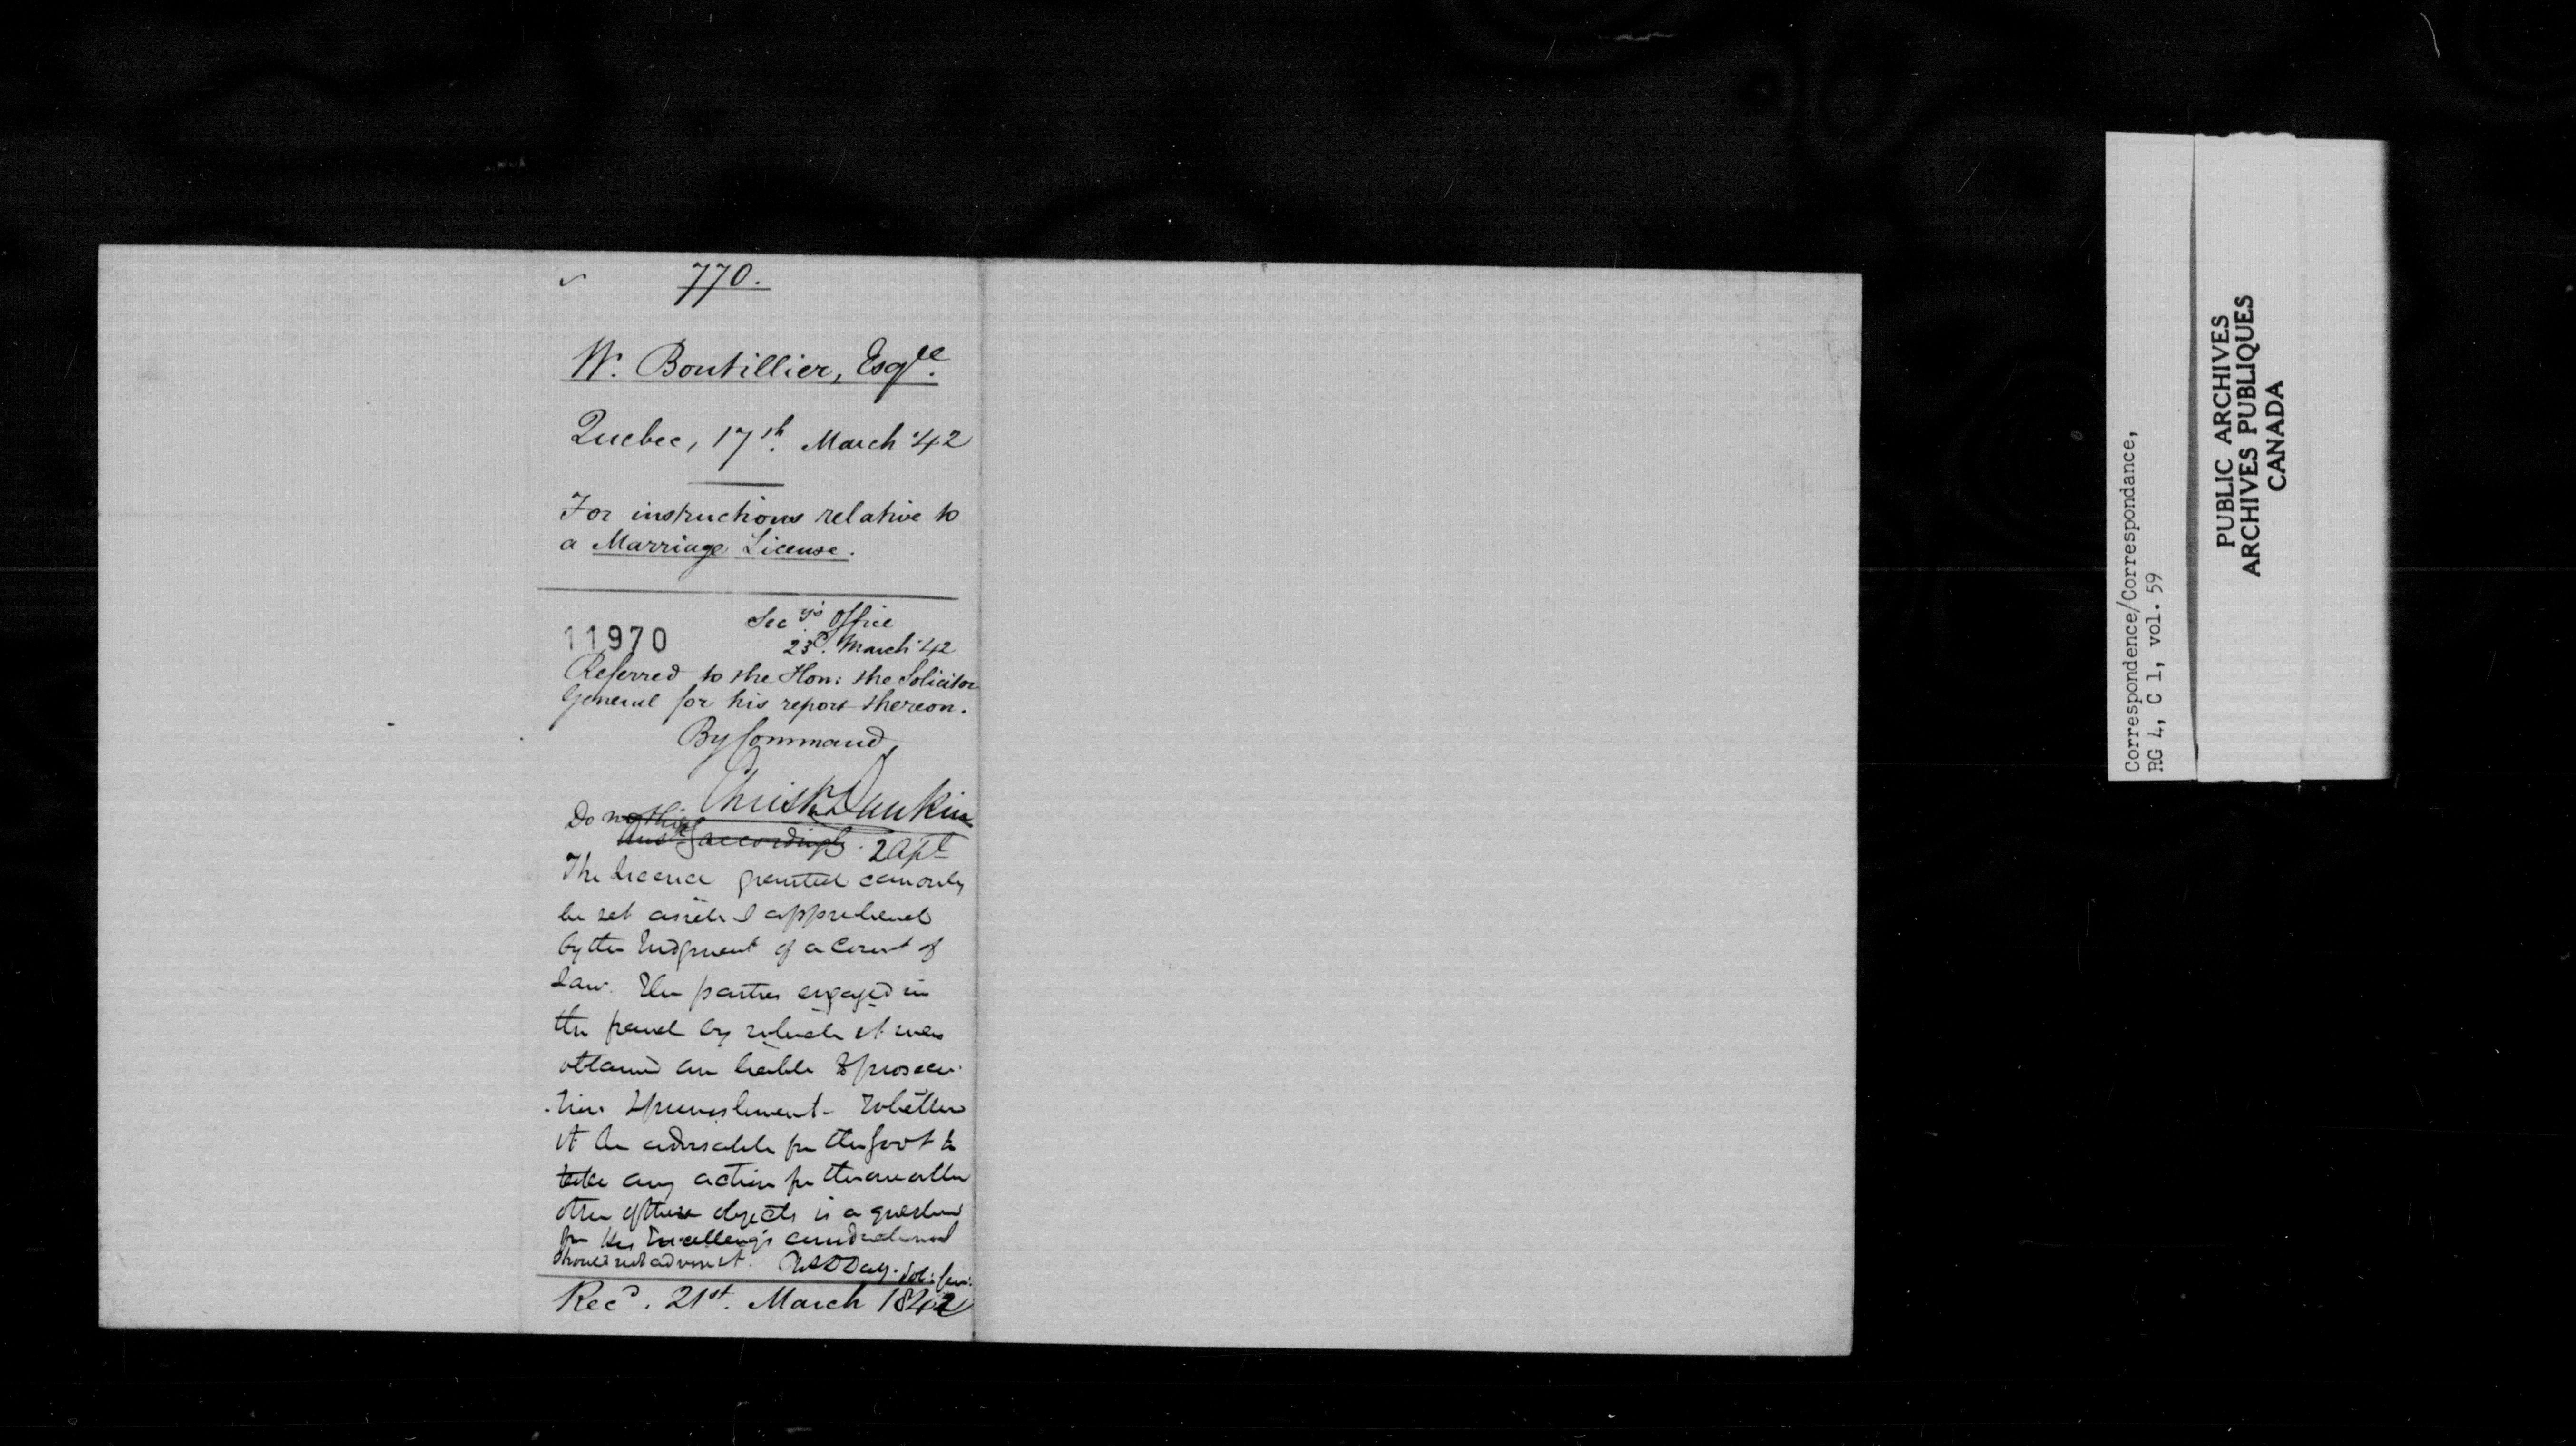 770.
W. Boutillier, Esqre.
Quebec, 17th. March '42
For instructions relative to
a Marriage License.
Secy's Office
11970
23d. March '42
Referred to the Hon: the Solicitor
General for his report thereon.
By Command,
Christr Dunkin
Do nothing
accordingly. 2 Apl
The licence granted can only
be set aside I apprehend
by the Judgment of a Court of
Law. The parties engaged in
the fraud by which it was
obtained are liable to prosecu-
-tion & punishment - Whether
it be advisable for the Govt to
take any action for the one or the
other of these objects is a question
for His Excellency's consideration I
should not advise it. Day. Sol: Gen:
Recd. 21st. March 1842
Correspondence/Correspondance,
RG 4, C 1, vol. 59
PUBLIC ARCHIVES
ARCHIVES PUBLIQUES
CANADA